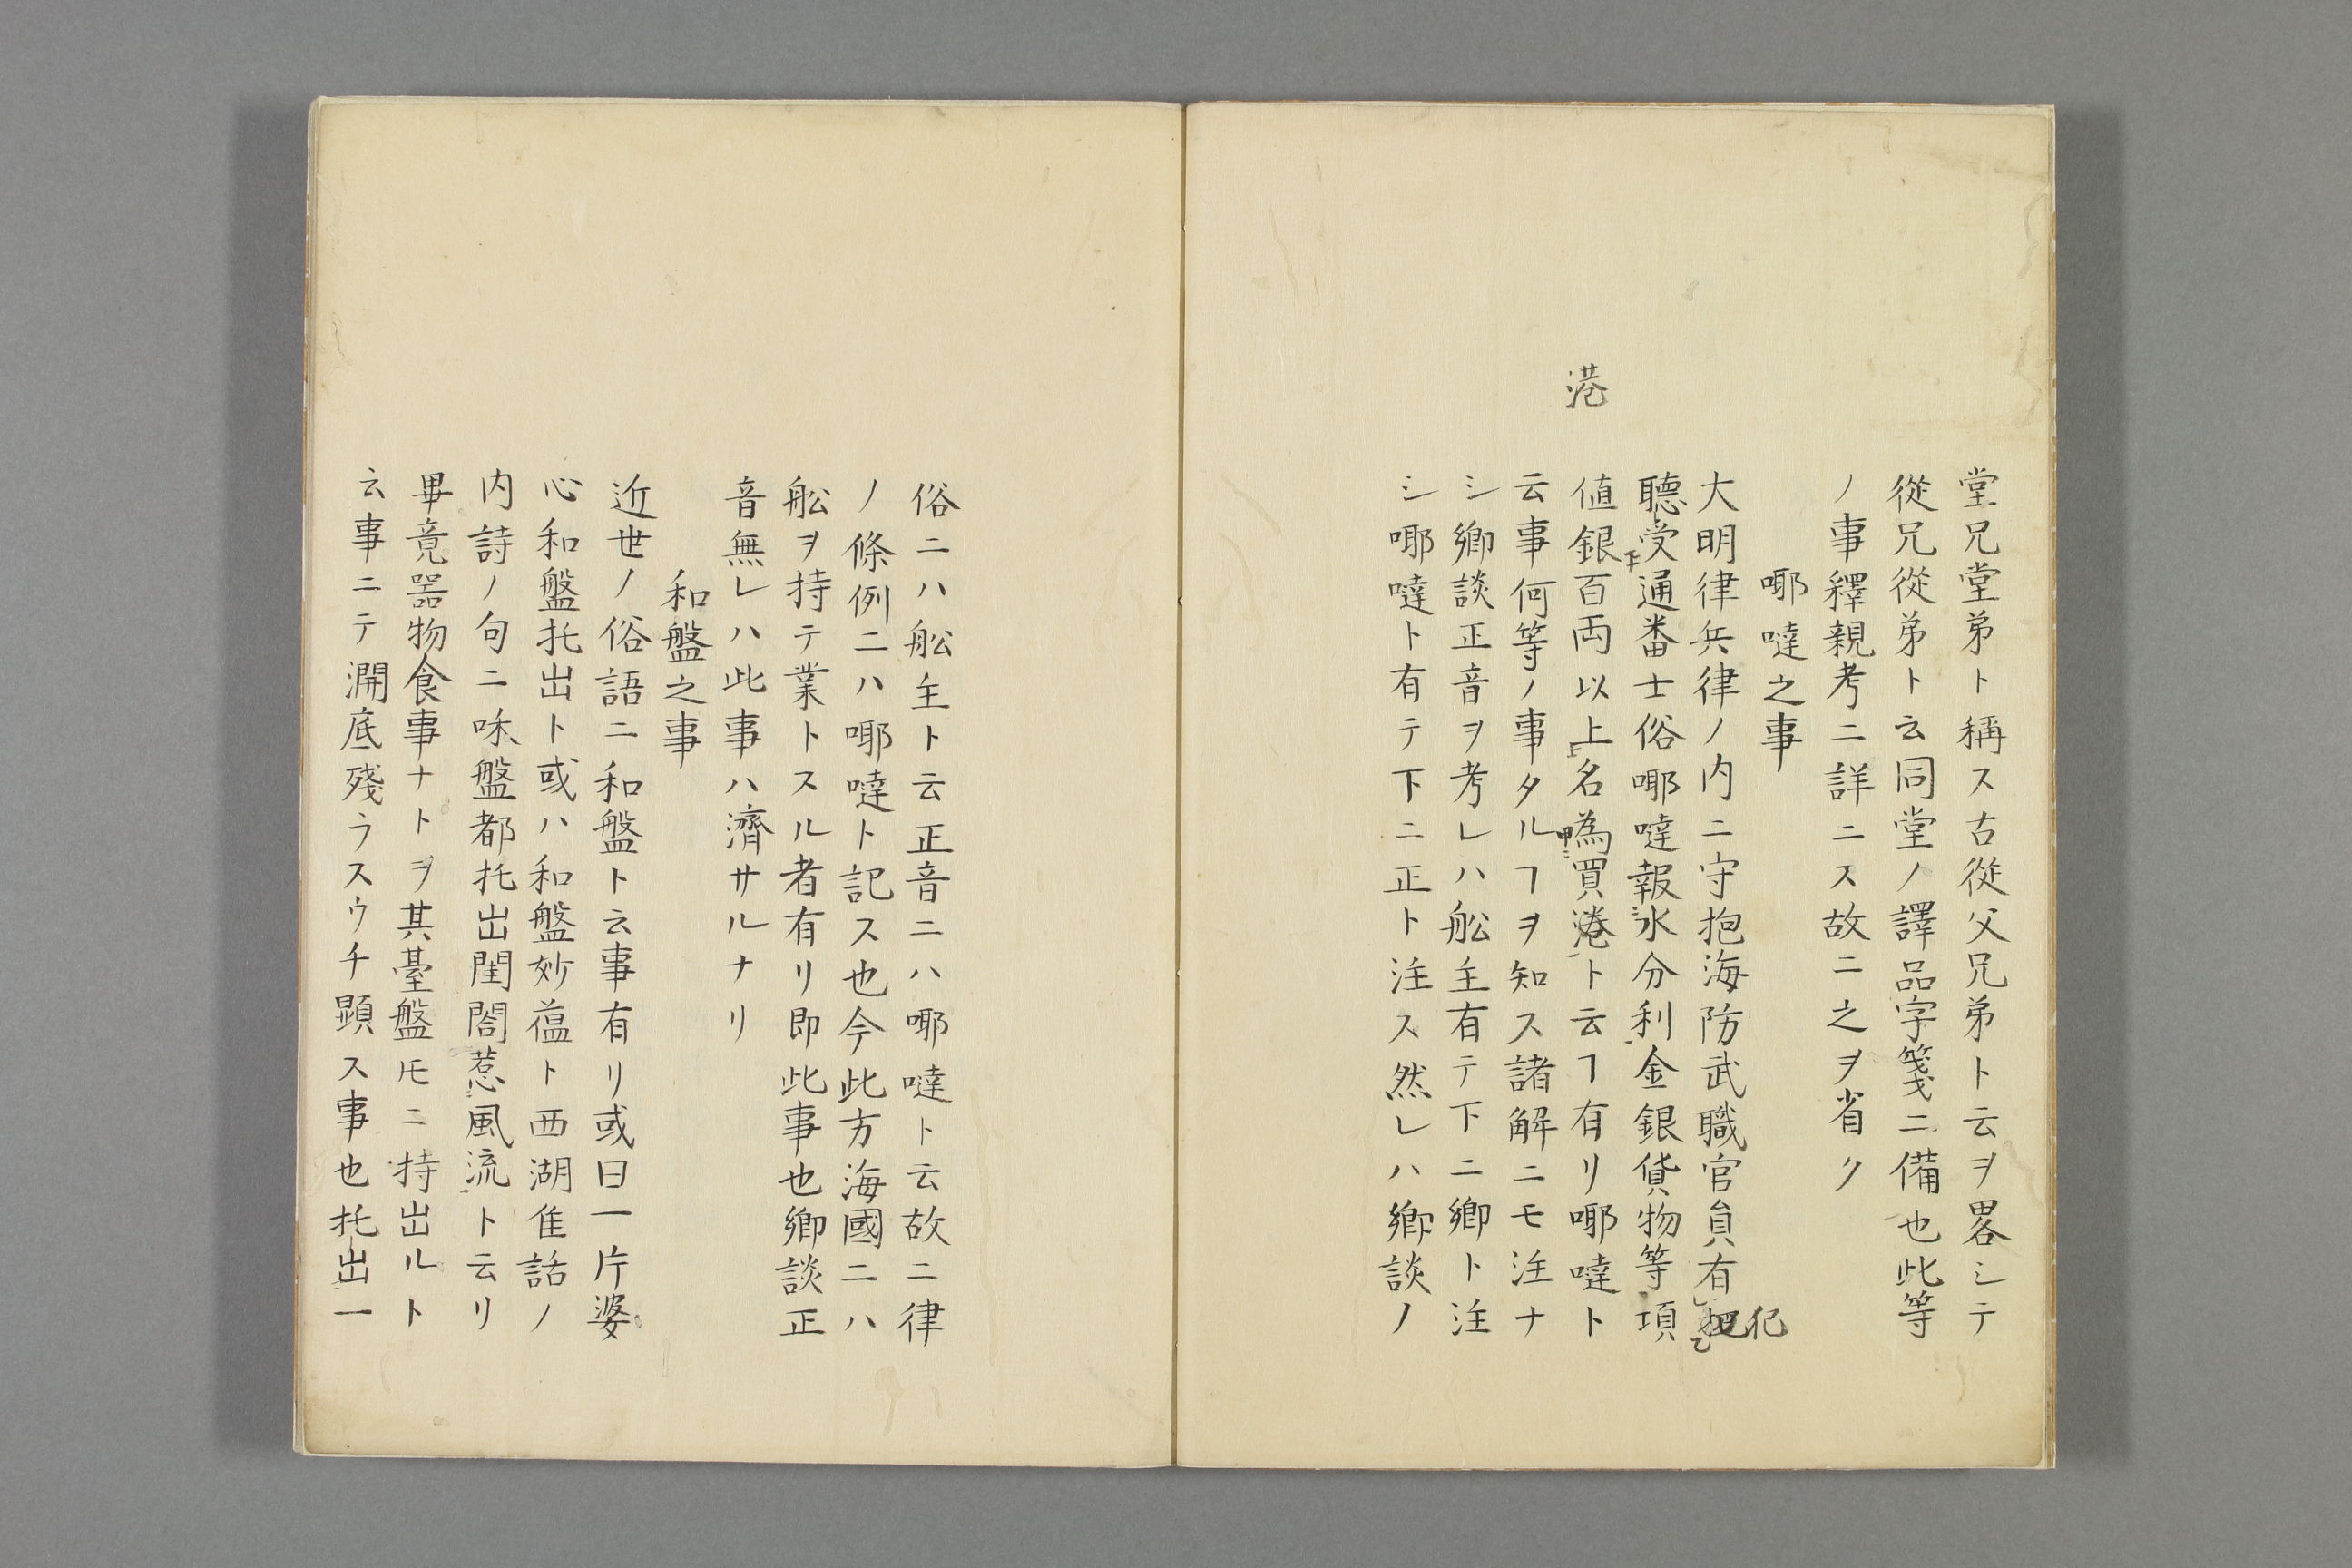 堂兄堂弟ト稱ス古從父兄弟ト云ヲ畧シテ
從兄從弟ト云同堂ノ譯品字箋ニ備也此等
ノ事釋親考ニ詳ニス故ニ之ヲ省ク
㖿噠之事
大明律兵律ノ内ニ守抱海防武職官員有犯
犯
聽受通番士俗㖿噠報水分利金銀貨物等項
港
値銀百両以上名為買港ト云ヿ有リ㖿噠ト
云事何等ノ事タルヿヲ知ス諸解ニモ注ナ
シ鄉談正音ヲ考レハ舩主有テ下ニ鄉ト注
シ㖿噠ト有テ下ニ正ト注ス然レハ鄉談ノ
俗ニハ舩主ト云正音ニハ㖿噠ト云故ニ律
ノ條例ニハ㖿噠ト記ス也今此方海國ニハ
舩ヲ持テ業トスル者有リ即此事也鄉談正
音無レハ此事ハ濟サルナリ
和盤之事
近世ノ俗語ニ和盤ト云事有リ或曰一片婆
心和盤托出ト或ハ和盤妙蘊ト西湖隹話ノ
内詩ノ句ニ咊盤都托出閨閤惹風流ト云リ
畢竟噐物食事ナトヲ其䑓盤𪜈ニ持出ルト
云事ニテ澗底殘ラスウチ顕ス事也托出一